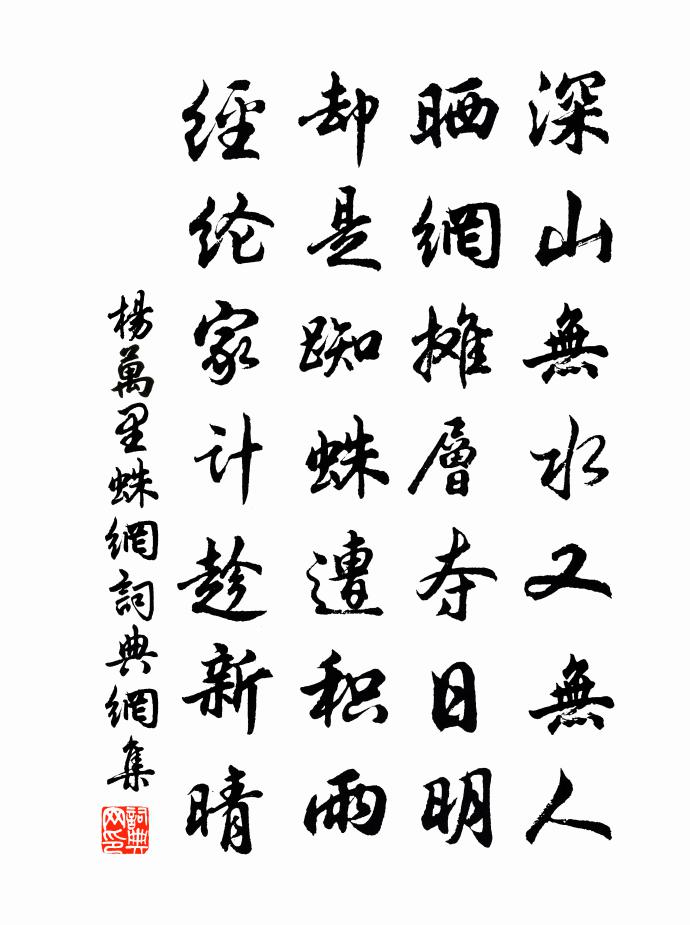 深山無水又無人
晒網摊層夺日明
却是蜘蛛遭积雨
經纶家计趁新晴
楊萬里蛛網詞典網集
詞典网印